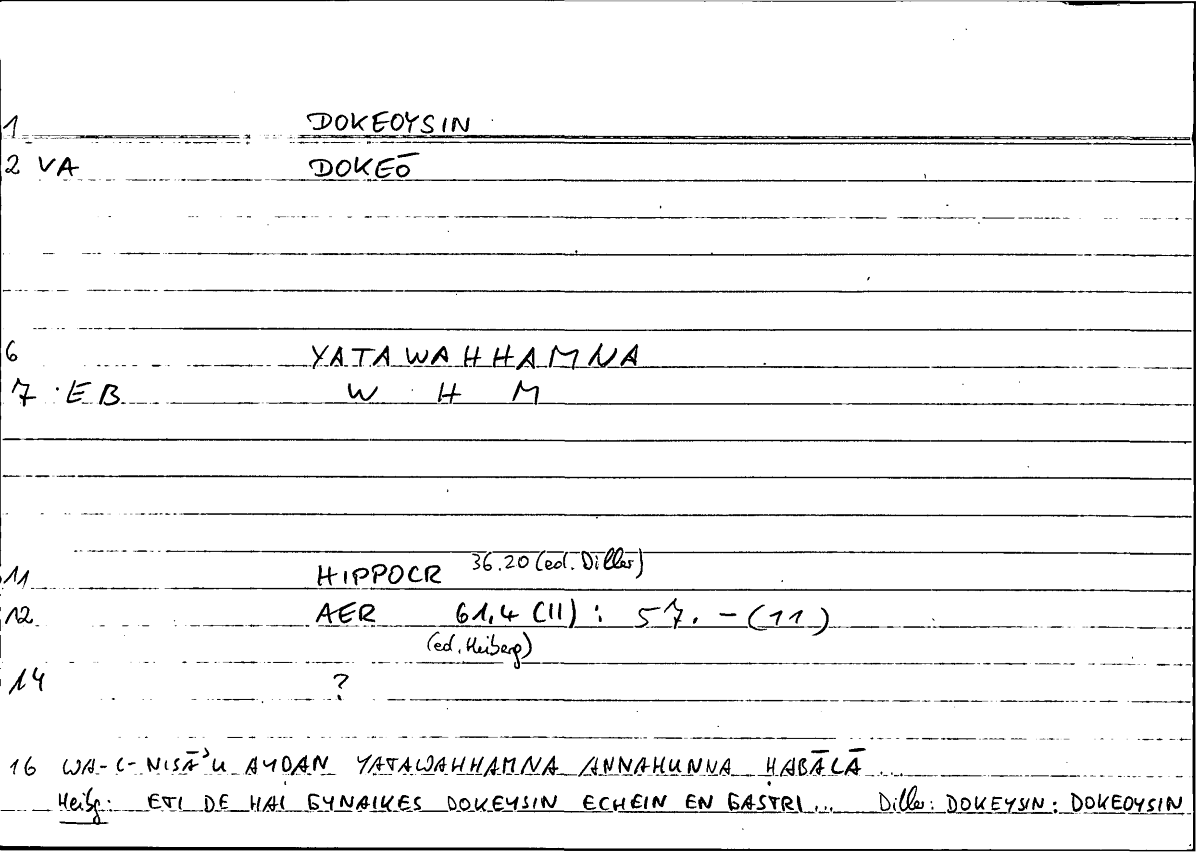 1 DOKEOYSIN
2 VA DOKEŌ
6 YATAWAHHAMNA
7 EB W H M
11 HIPPOCR 36.20 (ed. Diller)
12 AER 61,4 (11) : 57. - (11)
(ed. Heiberg)
14 ?
16 WA-L-NISĀʾU AYḌAN YATAWAHHAMNA ANNAHUNNA ḤABĀLĀ ...
Heibg: ETI DE HAI GYNAIKES DOKEYSIN ECHEIN EN GASTRI ... Diller: DOKEYSIN : DOKEOYSIN